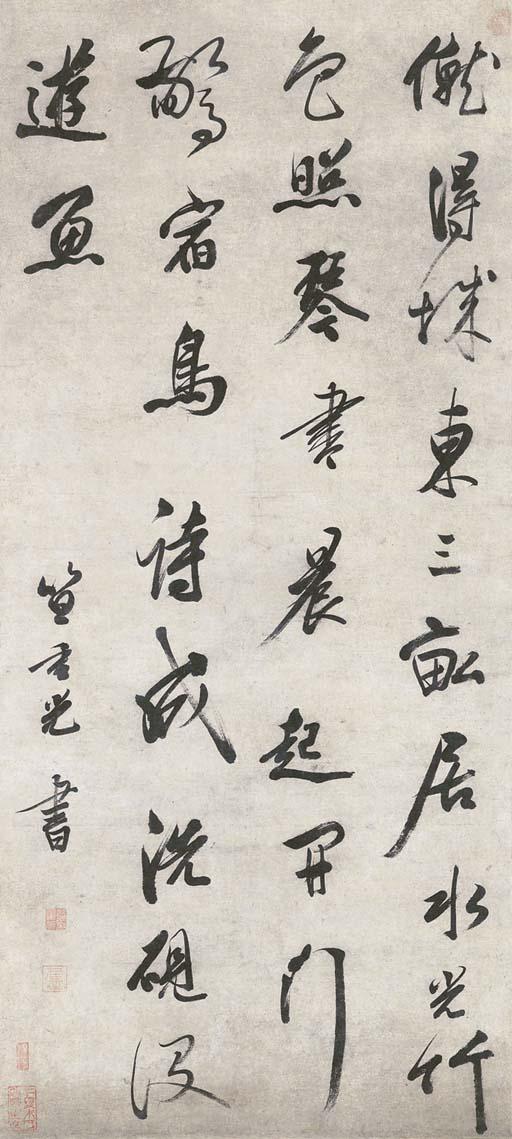 僦得城東三畝居水光竹
色照琴書晨起開門
驚宿鳥詩成洗硯沒
遊魚
笪重光書